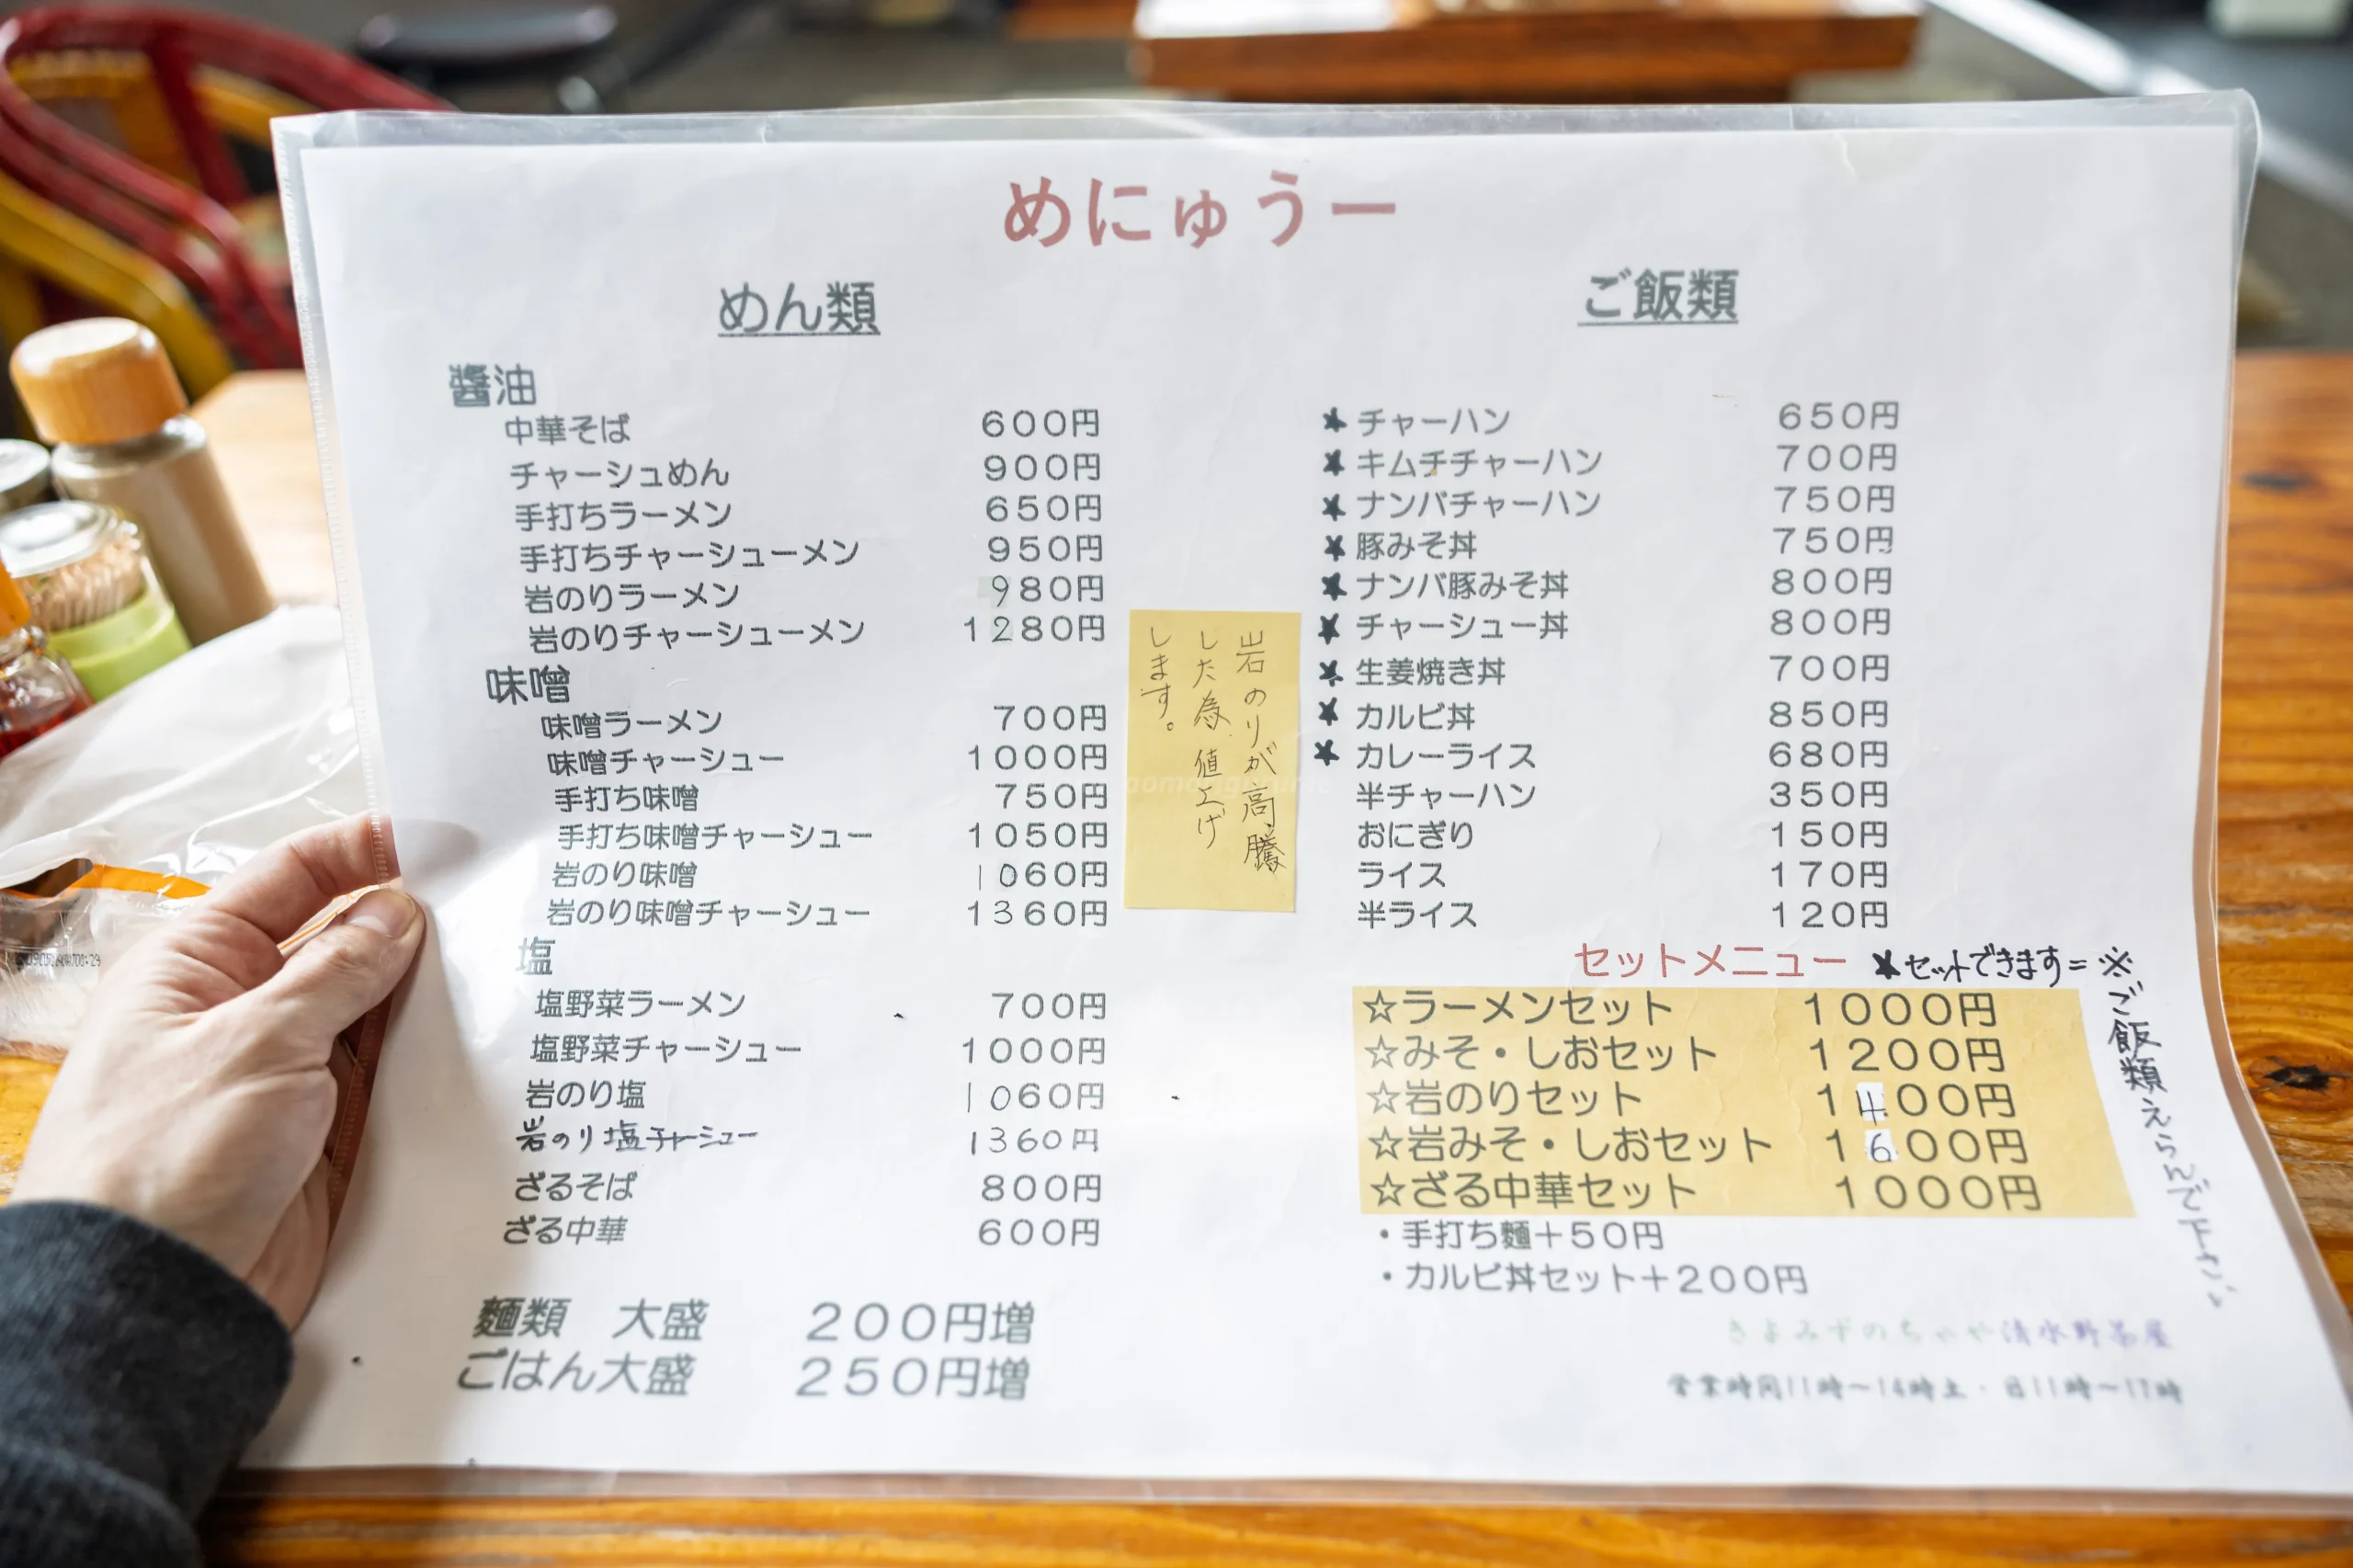 めにゅうー
めん類
醤油
中華そば 600円
チャーシュめん 900円
手打ちラーメン 650円
手打ちチャーシューメン 950円
岩のりラーメン 980円
岩のりチャーシューメン 1280円
味噌
味噌ラーメン 700円
味噌チャーシュー 1000円
手打ち味噌 750円
手打ち味噌チャーシュー 1050円
岩のり味噌 1060円
岩のり味噌チャーシュー 1360円
塩
塩野菜ラーメン 700円
塩野菜チャーシュー 1000円
岩のり塩 1060円
岩のり塩チャーシュー 1360円
ざるそば 800円
ざる中華 600円
麺類 大盛 200円増
ごはん大盛 250円増
岩のりが高騰
した為値上げ
します。
ご飯類
★チャーハン 650円
★キムチチャーハン 700円
★ナンバチャーハン 750円
★豚みそ丼 750円
★ナンバ豚みそ丼 800円
★チャーシュー丼 800円
★生姜焼き丼 700円
★カルビ丼 850円
★カレーライス 680円
半チャーハン 350円
おにぎり 150円
ライス 170円
半ライス 120円
セットメニュー ★セットできます=※
ご飯類えらんで下さい
☆ラーメンセット 1000円
☆みそ・しおセット 1200円
☆岩のりセット 1400円
☆岩みそ・しおセット 1600円
☆ざる中華セット 1000円
・手打ち麺+50円
・カルビ丼セット+200円
きよみずのちゃや清水野茶屋
営業時間11時~14時土・日11時~17時